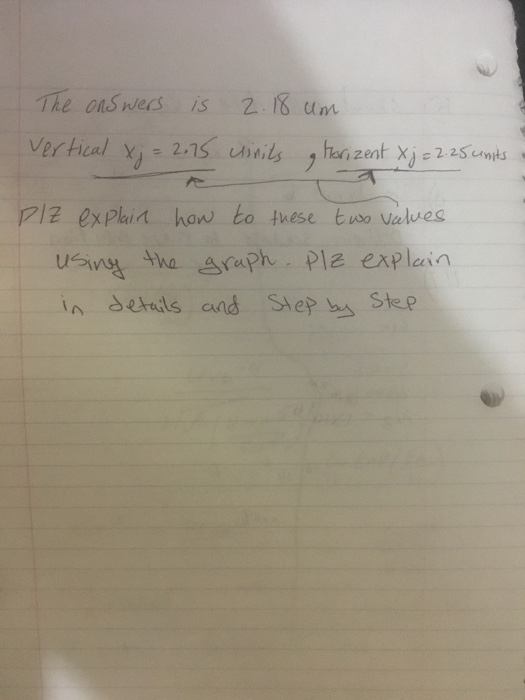 The answers is 2.18 um
Vertical xj = 2.75 uinits , Horizent xj = 2.25 units
plz explain how to these two values
using the graph. plz explain
in details and step by step